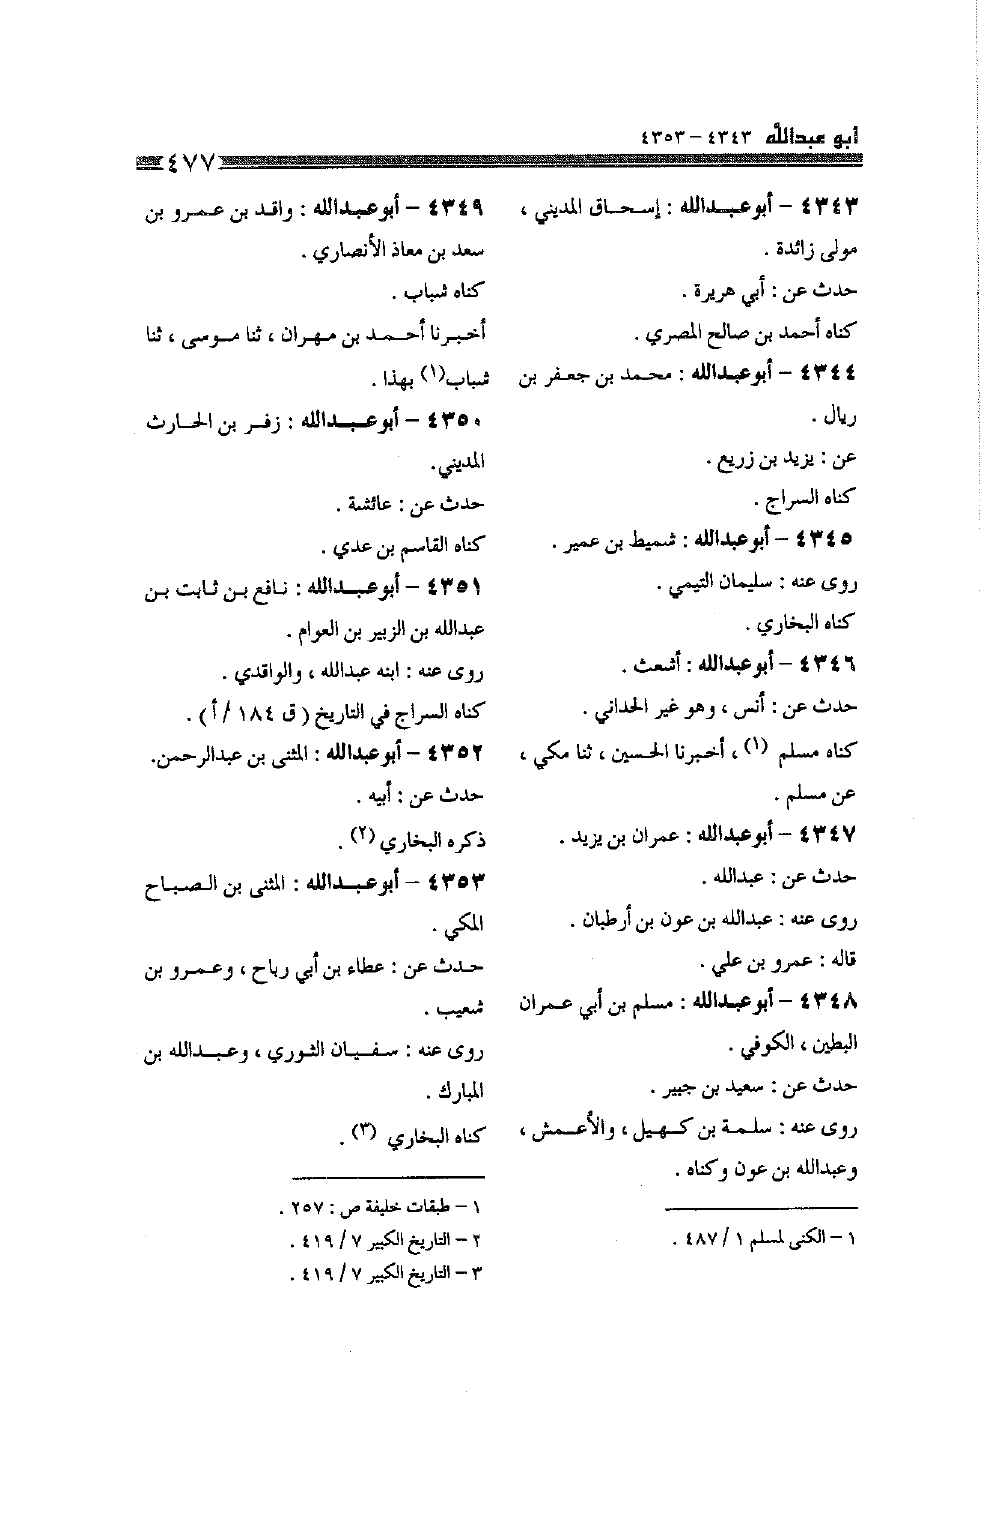 أبو عبدالله ٤٣٤٣ – ٤٣٥٣
٤٧٧
٤٣٤٣ – أبو عبدالله : إسحاق المديني ،
مولى زائدة .
حدث عن : أبي هريرة .
كناه أحمد بن صالح المصري .
٤٣٤٤ – أبو عبدالله : محمد بن جعفر بن
ريال .
عن : يزيد بن زريع .
كناه السراج .
٤٣٤٥ – أبو عبدالله : شميط بن عمير .
روى عنه : سليمان التيمي .
كناه البخاري .
٤٣٤٦ – أبو عبدالله : أشعث .
حدث عن : أنس ، وهو غير الحداني .
كناه مسلم (١) ، أخبرنا الحسين ، ثنا مكي ،
عن مسلم .
٤٣٤٧ – أبو عبدالله : عمران بن يزيد .
حدث عن : عبدالله .
روى عنه : عبدالله بن عون بن أرطبان .
قاله : عمرو بن علي .
٤٣٤٨ – أبو عبدالله : مسلم بن أبي عمران
البطين ، الكوفي .
حدث عن : سعيد بن جبير .
روى عنه : سلمة بن كهيل ، والأعمش ،
وعبدالله بن عون وكناه .
١ – الكنى لمسلم ١ / ٤٨٧ .
٤٣٤٩ – أبو عبدالله : واقد بن عمرو بن
سعد بن معاذ الأنصاري .
كناه شباب .
أخبرنا أحمد بن مهران ، ثنا موسى ، ثنا
شباب(١) بهذا .
٤٣٥٠ – أبو عبدالله : زفر بن الحارث
المديني.
حدث عن : عائشة .
كناه القاسم بن عدي .
٤٣٥١ – أبو عبدالله : نافع بن ثابت بن
عبدالله بن الزبير بن العوام .
روى عنه : ابنه عبدالله ، والواقدي .
كناه السراج في التاريخ ( ق ١٨٤ / أ ) .
٤٣٥٢ – أبو عبدالله : المثنى بن عبدالرحمن.
حدث عن : أبيه .
ذكره البخاري (٢) .
٤٣٥٣ – أبو عبدالله : المثنى بن الصباح
المكي .
حدث عن : عطاء بن أبي رباح ، وعمرو بن
شعيب .
روى عنه : سفيان الثوري ، وعبدالله بن
المبارك .
كناه البخاري (٣) .
١ – طبقات خليفة ص : ٢٥٧ .
٢ – التاريخ الكبير ٧ / ٤١٩ .
٣ – التاريخ الكبير ٧ / ٤١٩ .